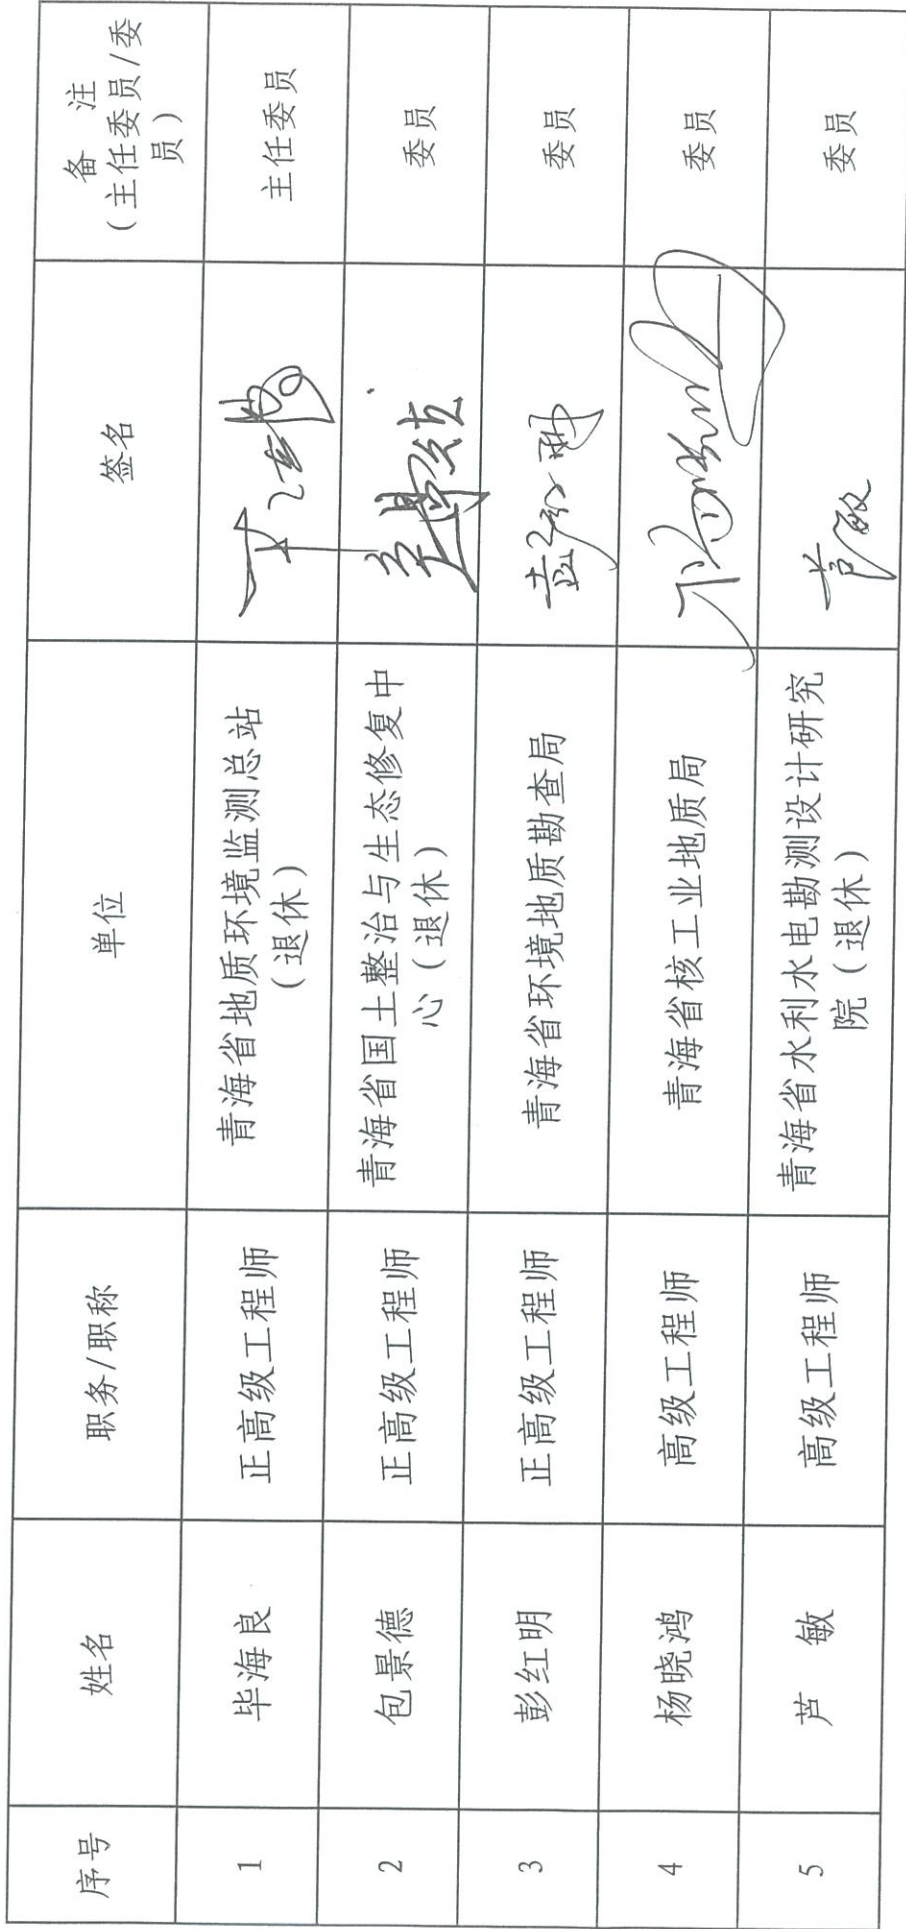 序号 姓名 职务/职称 单位 签名 备 注
(主任委员/委
员)
1 毕海良 正高级工程师 青海省地质环境监测总站
(退休) 主任委员
2 包景德 正高级工程师 青海省国土整治与生态修复中
心(退休) 委员
3 彭红明 正高级工程师 青海省环境地质勘查局 委员
4 杨晓鸿 高级工程师 青海省核工业地质局 委员
5 芦 敏 高级工程师 青海省水利水电勘测设计研究
院(退休) 芦敏 委员